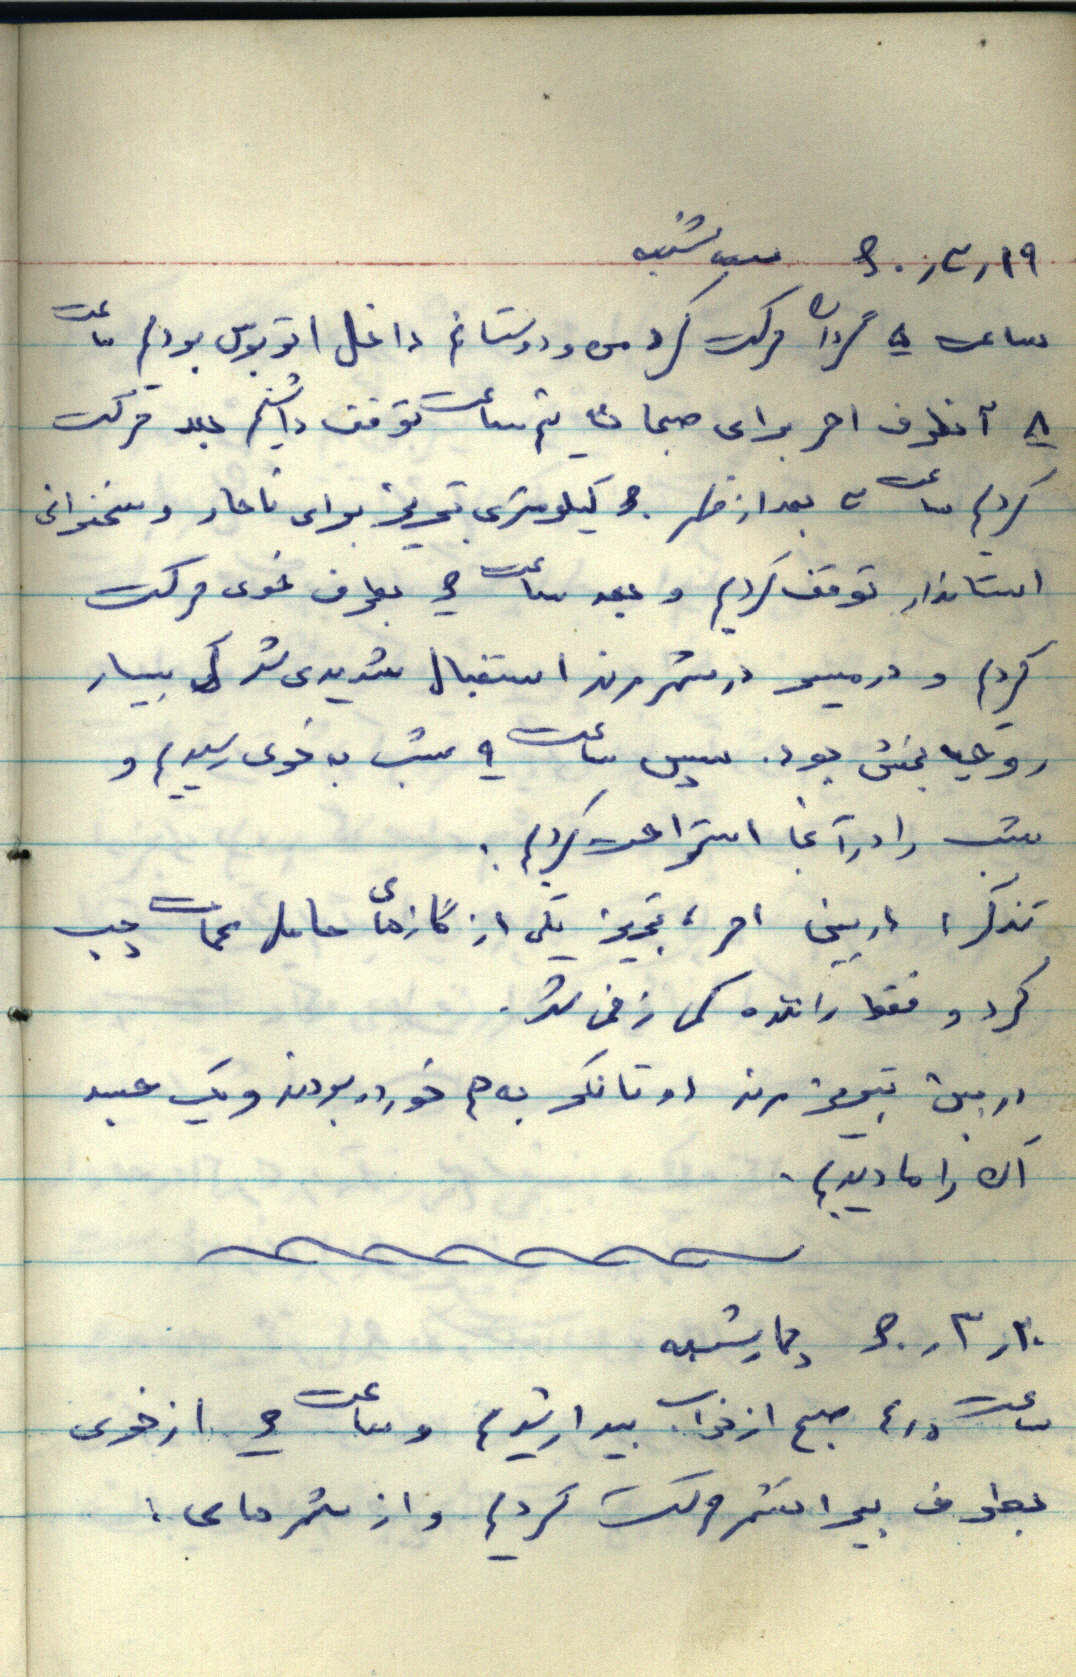 ۱۹ر۳ر۶۰ سه شنبه
ساعت ۵ گردان حرکت کرد من و دوستانم داخل اتوبوس بودیم ساعت
۸ آنطرف اهر برای صبحانه نیم ساعت توقف داشتیم بعد حرکت
کردیم ساعت ۲ بعد از ظهر ۶۰ کیلومتری تبریز برای ناهار و سخنرانی
استاندار توقف کردیم و بعد ساعت ۶ بطرف خوی حرکت
کردیم و در مسیر در شهر مرند استقبال شدیدی شد که بسیار
روحیه بخش بود. سپس ساعت ۹ شب به خوی رسیدیم و
شب را در آنجا استراحت کردیم.
تذکر: در بین اهر، تبریز یکی از گازهای حامل مهمات چپ
کرد و فقط راننده کمی زخمی شد.
در بین تبریز مرند دو تانکر به هم خورده بودند و یک جسد
آن را ما دیدیم.
۲۰ر۳ر۶۰ چهارشنبه
ساعت ۴٫۵ صبح از خواب بیدار شدیم و ساعت ۶ از خوی
بطرف پیرانشهر حرکت کردیم و از شهرهای: